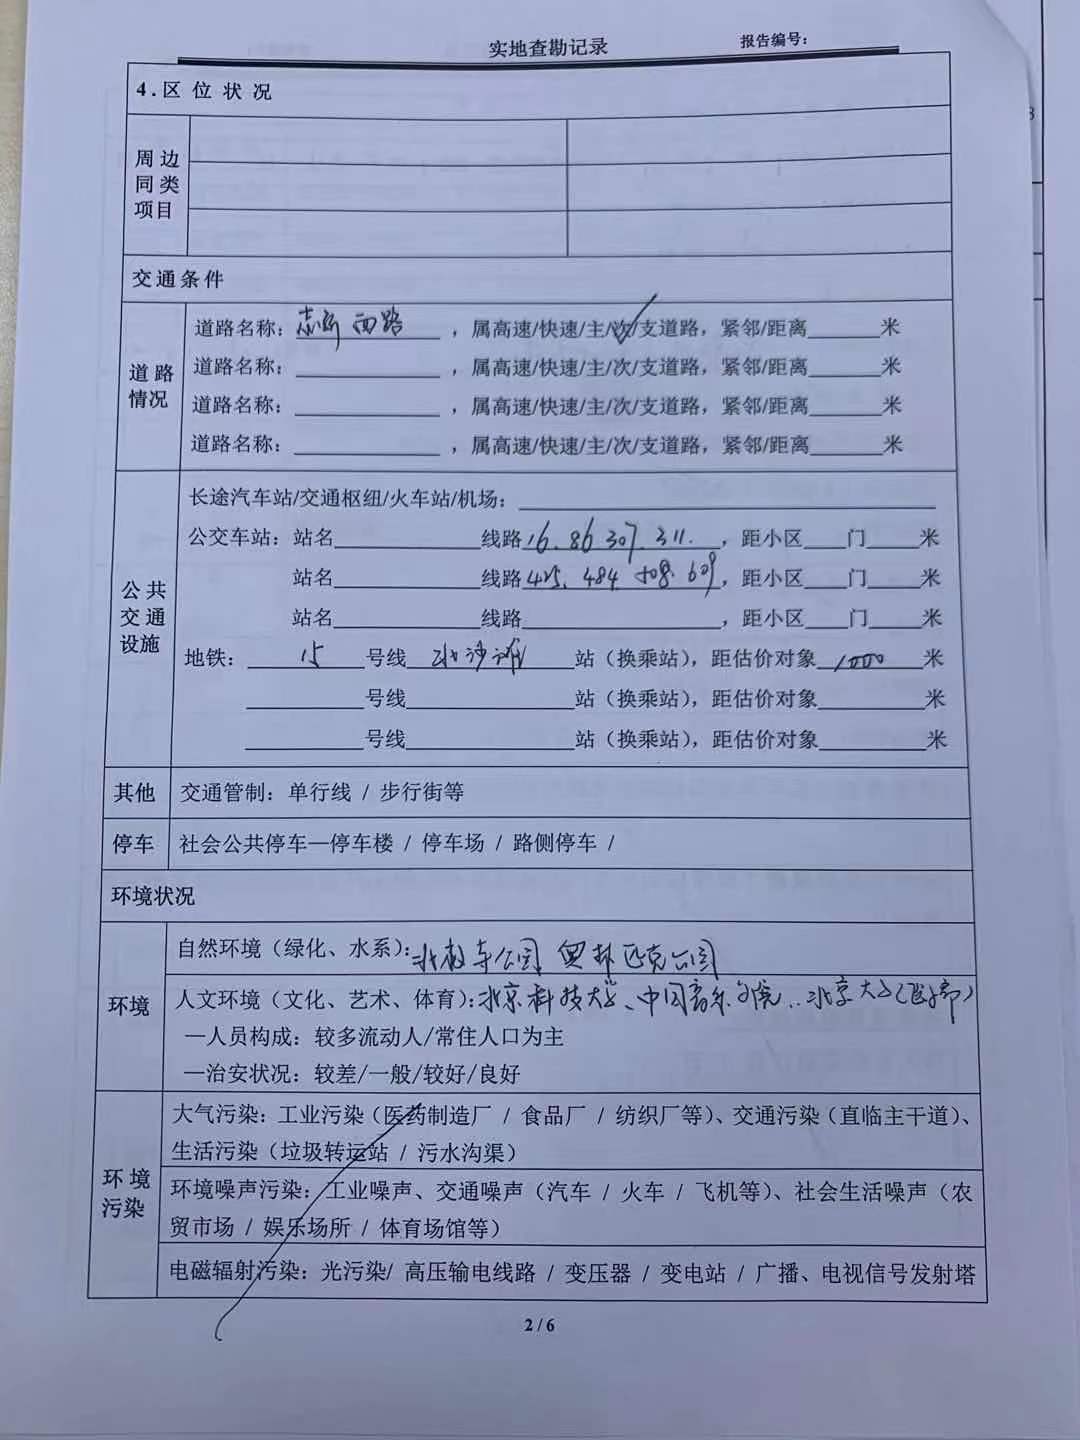 实地查勘记录
报告编号:
4.区位状况
周边同类项目
交通条件
道路情况
道路名称: 志新西路 ，属高速/快速/主/次/支道路，紧邻/距离______米
道路名称:____________，属高速/快速/主/次/支道路，紧邻/距离______米
道路名称:____________，属高速/快速/主/次/支道路，紧邻/距离______米
道路名称:____________，属高速/快速/主/次/支道路，紧邻/距离______米
公共交通设施
长途汽车站/交通枢纽/火车站/机场:
公交车站: 站名____________线路16.86 307.311.，距小区____门____米
站名____________线路425.484.508.609，距小区____门____米
站名____________线路____________，距小区____门____米
地铁: 15 号线 北沙滩 站（换乘站），距估价对象 1000 米
____________号线____________站（换乘站），距估价对象______米
____________号线____________站（换乘站），距估价对象______米
其他 交通管制: 单行线 / 步行街等
停车 社会公共停车—停车楼 / 停车场 / 路侧停车 /
环境状况
环境
自然环境（绿化、水系）: 公园 奥林匹克公园
人文环境（文化、艺术、体育）: 北京科技大学、中国音乐学院、北京大学（医学部）
—人员构成: 较多流动人/常住人口为主
—治安状况: 较差/一般/较好/良好
环境污染
大气污染: 工业污染（医药制造厂 / 食品厂 / 纺织厂等）、交通污染（直临主干道）、
生活污染（垃圾转运站 / 污水沟渠）
环境噪声污染: 工业噪声、交通噪声（汽车 / 火车 / 飞机等）、社会生活噪声（农
贸市场 / 娱乐场所 / 体育场馆等）
电磁辐射污染: 光污染/ 高压输电线路 / 变压器 / 变电站 / 广播、电视信号发射塔
2 / 6